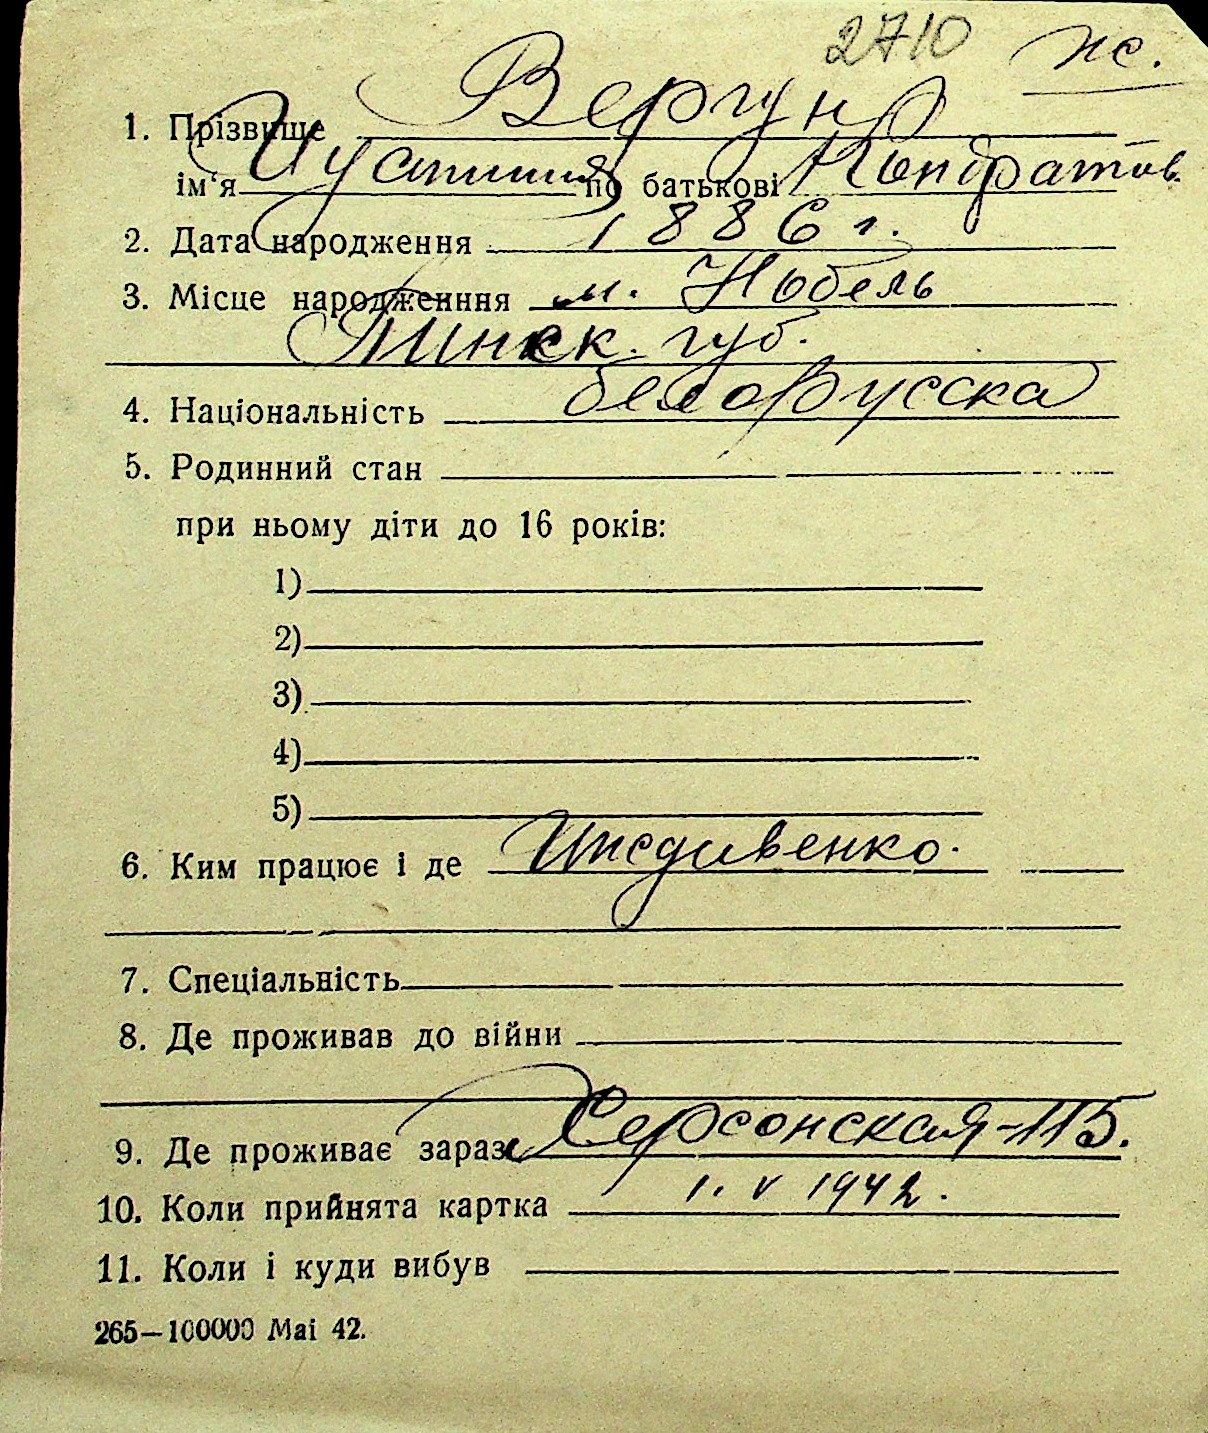 2710 ж.
1. Прізвище Вергун
ім'я Иустиния по батькові Кондратов.
2. Дата народження 1886 г.
3. Місце народженння м. Нобель
Пинск. губ.
4. Національність белорусска
5. Родинний стан
при ньому діти до 16 років:
1)
2)
3)
4)
5)
6. Ким працює і де Иждивенко.
7. Спеціальність
8. Де проживав до війни
9. Де проживає зараз Херсонская-115.
10. Коли прийнята картка 1. V 1942.
11. Коли і куди вибув
265—100000 Маі 42.